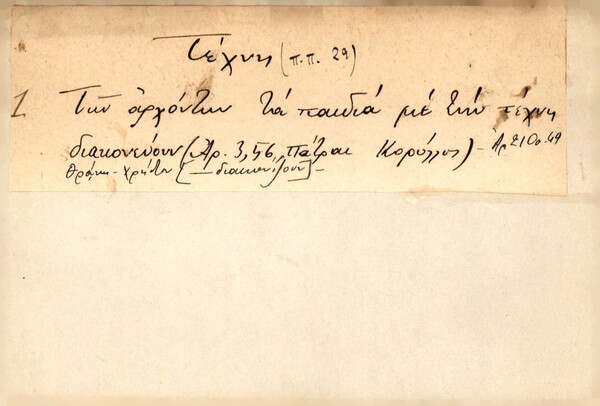 Τέχνη (π.π. 29)
1 Των ἀρχόντων τά παιδιά μέ τήν τέχνη
διακονεύουν (Αρ. 3,56, Πάτραι Κορύλλος) -
Θράκη - [—διακονίζουν] -